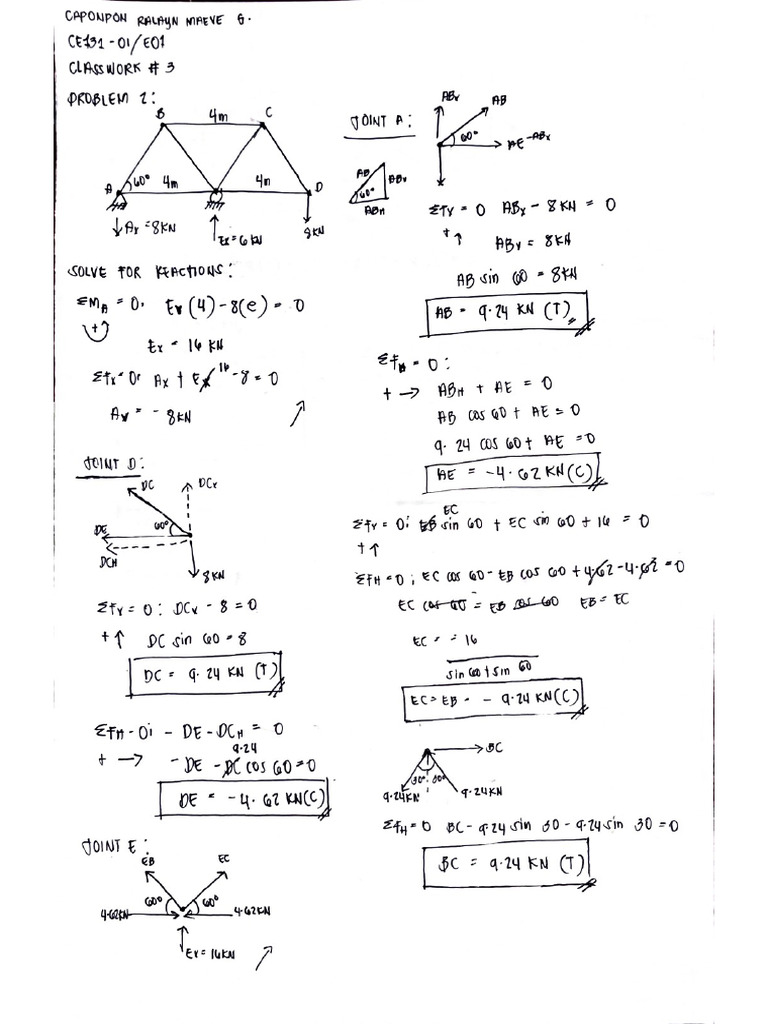 CAPONPON RALAYN MAEVE G.
CE131-01/E01
CLASSWORK # 3
PROBLEM 2:
B 4m C
A 60° 4m 4m D
Ay = 8KN
Ey = 6 KN
8KN
SOLVE FOR REACTIONS:
ΣMA = 0: Ey (4) - 8(8) = 0
Ey = 16 KN
ΣFy = 0: Ay + Ey 16 - 8 = 0
Ay = - 8KN
JOINT D:
DC DCy
DE 60°
DCH
8KN
ΣFy = 0: DCy - 8 = 0
+↑ DC sin 60 = 8
DC = 9.24 KN (T)
ΣFH = 0: - DE - DCH = 0
9.24
+ → - DE - DC cos 60 = 0
DE = -4.62 KN(C)
JOINT E:
EB EC
60° 60°
4.62KN 4.62KN
Ey = 16KN
JOINT A:
ABy AB
60° AE -ABx
AB ABy
60°
ABH
ΣFy = 0 ABy - 8 KN = 0
+↑ ABy = 8KN
AB sin 60 = 8KN
AB = 9.24 KN (T)
ΣFH = 0:
+ → ABH + AE = 0
AB cos 60 + AE = 0
9.24 cos 60 + AE = 0
AE = -4.62 KN (C)
EC
ΣFy = 0: EB sin 60 + EC sin 60 + 16 = 0
+↑
ΣFH = 0: EC cos 60 - EB cos 60 + 4.62 - 4.62 = 0
EC cos 60 = EB cos 60 EB = EC
EC = - 16
sin 60 + sin 60
EC = EB = - 9.24 KN (C)
BC
30° 30°
9.24KN 9.24KN
ΣFH = 0 BC - 9.24 sin 30 - 9.24 sin 30 = 0
BC = 9.24 KN (T)